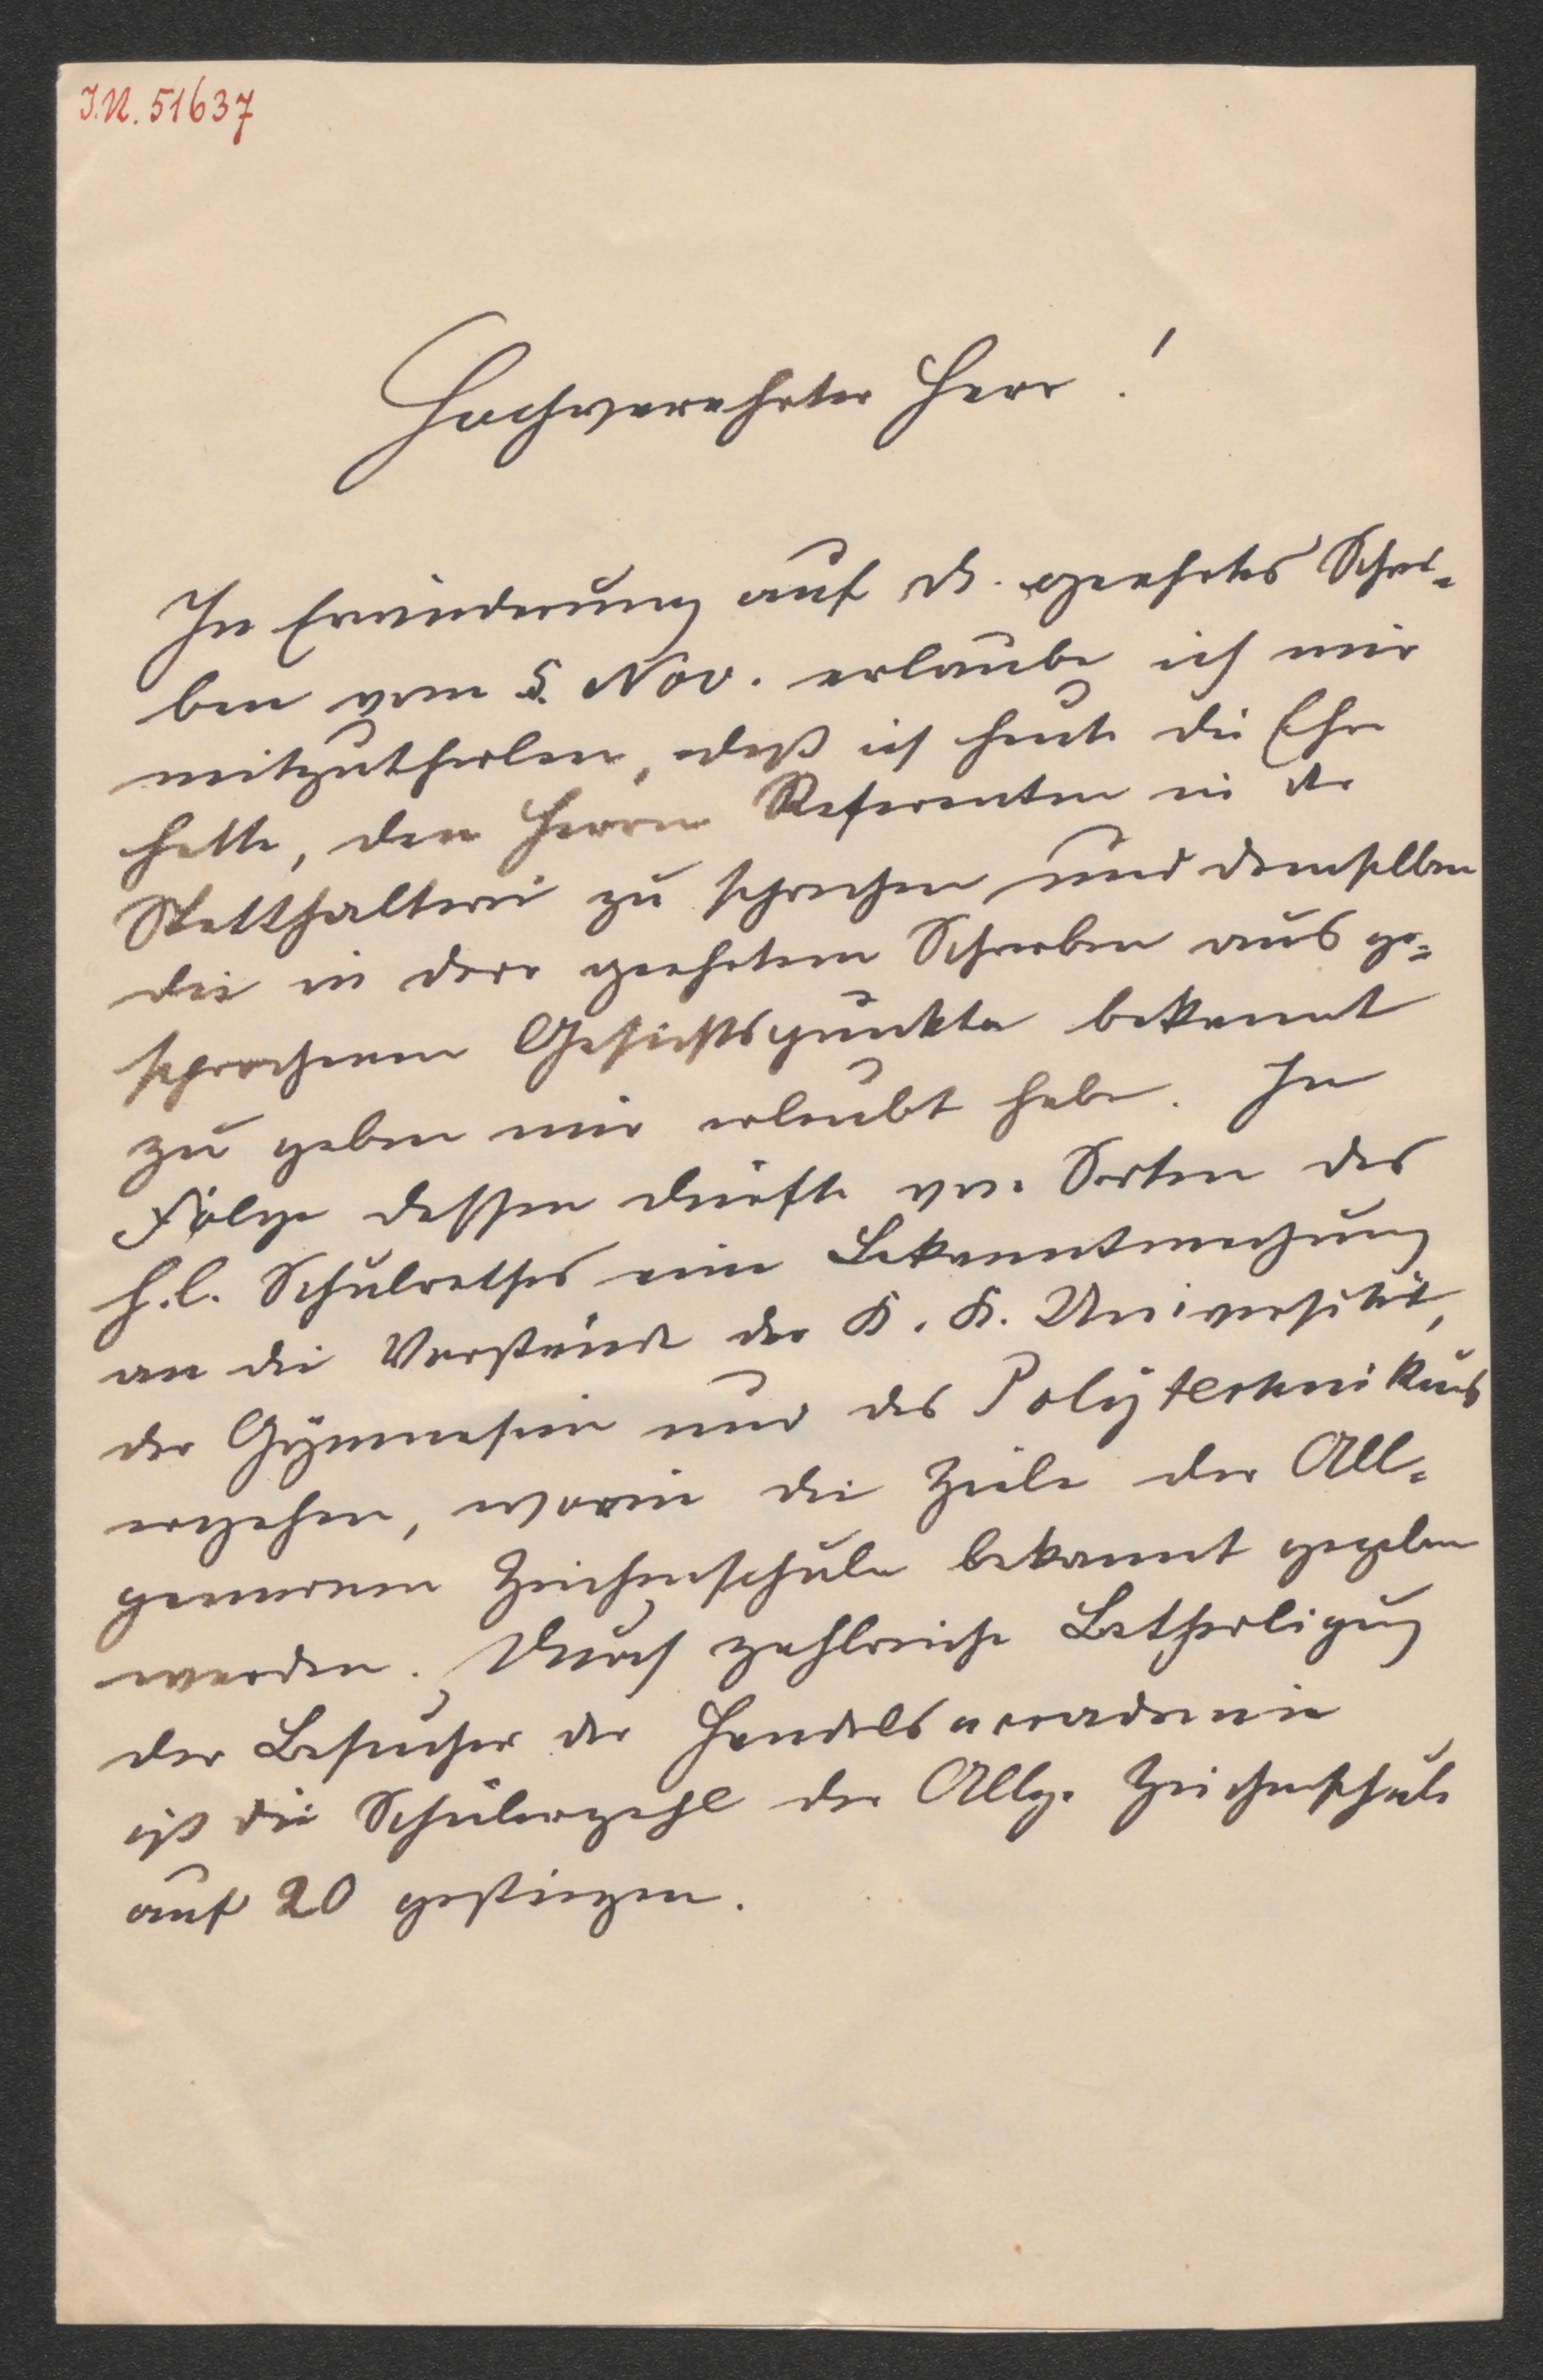 I.N. 51637
Hochverehrter Herr!
In Erwiederung auf d. geehrtes Schrei-
ben vom 5. Nov. erlaube ich mir
mitzutheilen, daß ich heute die Ehre
hatte, den Herrn Referenten in der
Statthalterei zu sprechen und demselben
die in dero geehrtem Schreiben ausge-
sprochenen Gesichtspunkte bekannt
zu geben mir erlaubt habe. In
Folge dessen dürfte von Seiten des
h. l. Schulrathes eine Bekanntmachung
an die Vorstände der K. K. Universität,
der Gymnasien und des Polytechnikums
ergehen, worin die Ziele der All-
gemeinen Zeichenschule bekannt gegeben
werden. Durch zahlreiche Betheiligung
der Besucher der Handelsaccademie
ist die Schülerzahl der Allg. Zeichenschule
auf 20 gestiegen.